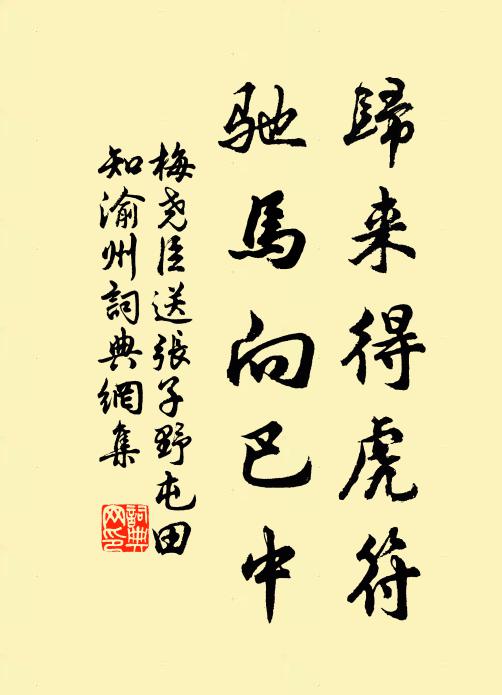 歸来得虎符
馳馬向巴中
梅尧臣送張子野屯田
知渝州詞典網集
詞典
网印